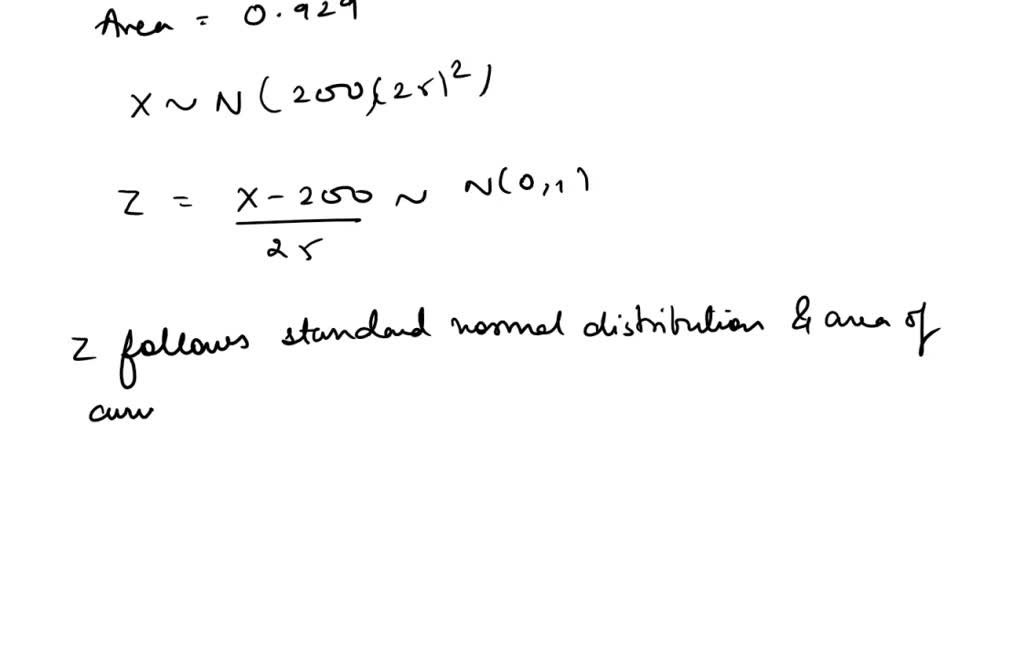 Area = 0.929
X ~ N(200,(25)²)
Z = X - 200 ~ N(0,1)
25
Z follows standard normal distribution & area of
curv